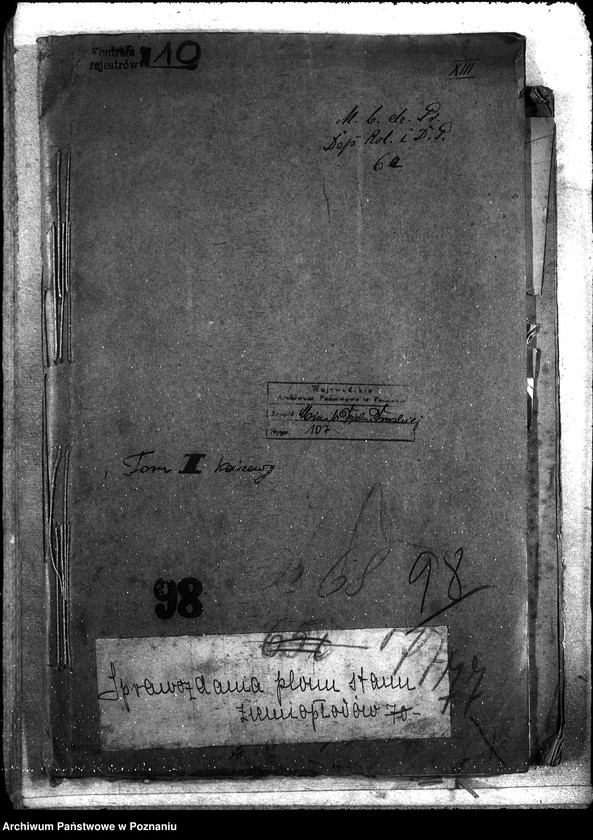 Kontrola
rejestrów № 10
XIII
M. b. dz. Pr.
Dep Rol. i D. P.
6a
Wojewódzkie
Archiwum Państwowe w Poznaniu
Zespół Minist. b. Dzieln. Pruskiej
Sygn. 107
Tom II końcowy
68 98
98
Sprawozdania plonu stanu
ziemiopłodów 70-
Archiwum Państwowe w Poznaniu